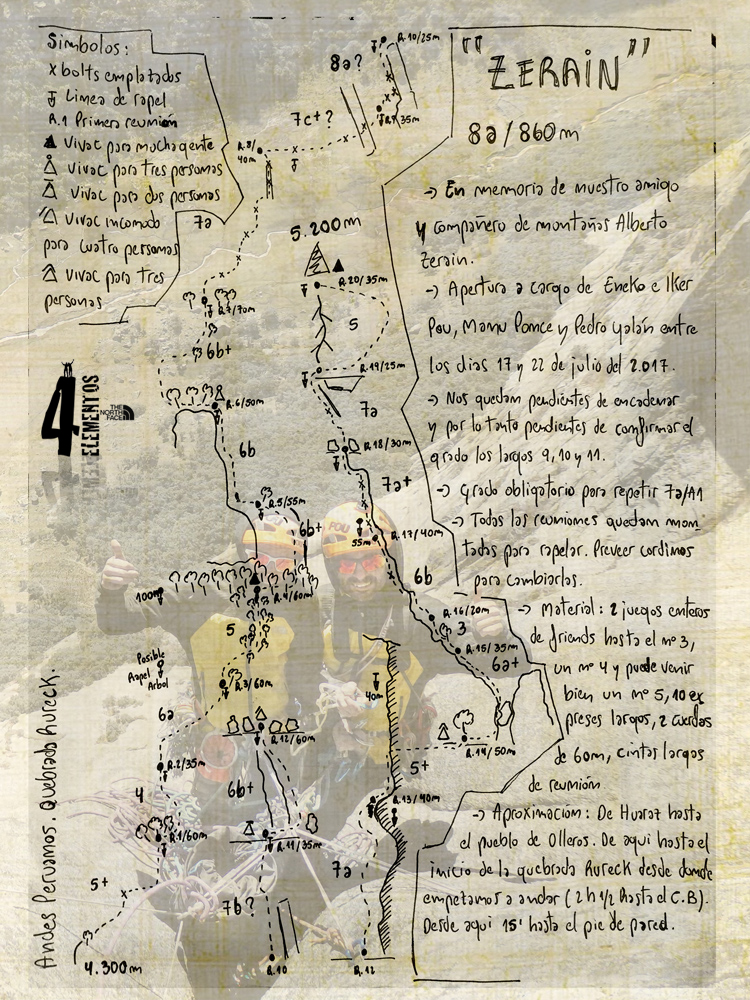 Simbolos:
x bolts emplazados
Linea de rapel
R.1 Primera reunión
Vivac para mucha gente
Vivac para tres personas
Vivac para dos personas
Vivac incomodo
para cuatro personas
Vivac para tres
personas
"ZERAIN"
8a/860m
→ En memoria de nuestro amigo
y compañero de montañas Alberto
Zerain.
→ Apertura a cargo de Eneko e Iker
Pou, Manu Ponce y Pedro Galán entre
los dias 17 y 22 de julio del 2.017.
→ Nos quedan pendientes de encadenar
y por lo tanto pendientes de confirmar el
grado los largos 9, 10 y 11.
→ Grado obligatorio para repetir 7a/A1
→ Todas las reuniones quedan mon
tadas para rapelar. Preveer cordinos
para cambiarlos.
→ Material: 2 juegos enteros
de friends hasta el nº 3,
un nº 4 y puede venir
bien un nº 5, 10 ex
preses largos, 2 cuerdas
de 60m, cintas largas
de reunión
→ Aproximación: De Huaraz hasta
el pueblo de Olleros. De aqui hasta el
inicio de la quebrada Rureck desde donde
empezamos a andar (2h 1/2 hasta el C.B).
Desde aqui 15' hasta el pie de pared.
R.10/25m
8a?
R.9/35m
7c+?
R.8/
40m
7a
R.7/70m
6b+
R.6/50m
6b
R.5/55m
6b+
R.4/60m
100m
5
Posible
Rapel
Arbol
R.3/60m
6a
R.2/35m
4
R.1/60m
5+
4.300m
5.200m
R.20/35m
5
R.19/25m
7a
R.18/30m
7a+
55m
R.17/40m
6b
R.16/20m
3
R.15/35m
6a+
40m
R.14/50m
5+
R.13/40m
7a
R.12
R.12/60m
6b+
R.11/35m
7b?
R.10
4
ELEMENTOS
THE
NORTH
FACE
POU
Andes Peruanos. Quebrada Rureck.